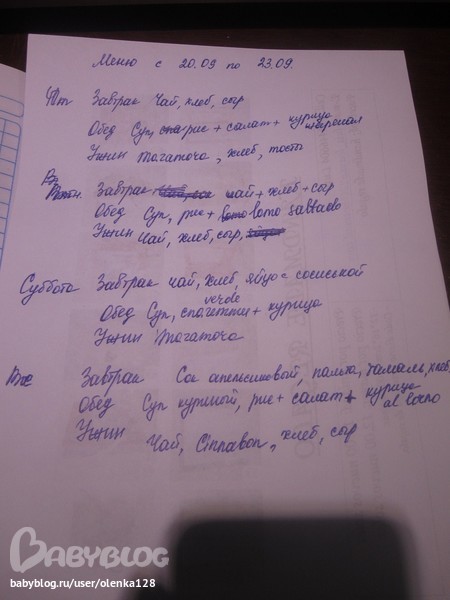 Меню с 20.09 по 23.09.
Пт Завтрак Чай, хлеб, сыр
Обед Суп, рис + салат + курица
Ужин тогаточа, хлеб, тосты
Завтрак чай + хлеб + сыр
Обед Суп, рис + lomo saltado
Ужин чай, хлеб, сыр,
Суббота Завтрак чай, хлеб, яйцо с сосиской
Обед Суп, спагетти verde + курица
Ужин тогаточа
Вс Завтрак Сок апельсиновый, пальта, тамаль, хлеб
Обед Суп куриный, рис + салат + курица al horno
Ужин Чай, Cinnabon, хлеб, сыр
BABYBLOG
babyblog.ru/user/olenka128